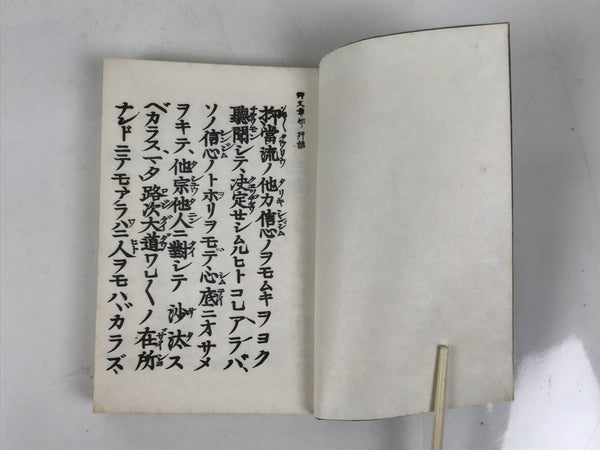 抑當流ノ他力信心ノヲモムキヲヨク
聽聞シテ、決定セシムルヒトコレアラバ、
ソノ信心ノトホリヲモテ、心底ニオサメ
ヲキテ、他宗他人ニ對シテ沙汰ス
ベカラス、マタ路次大道ワレ〱ノ在所
ナンドニテモアラハニ人ヲモハヾカラズ、